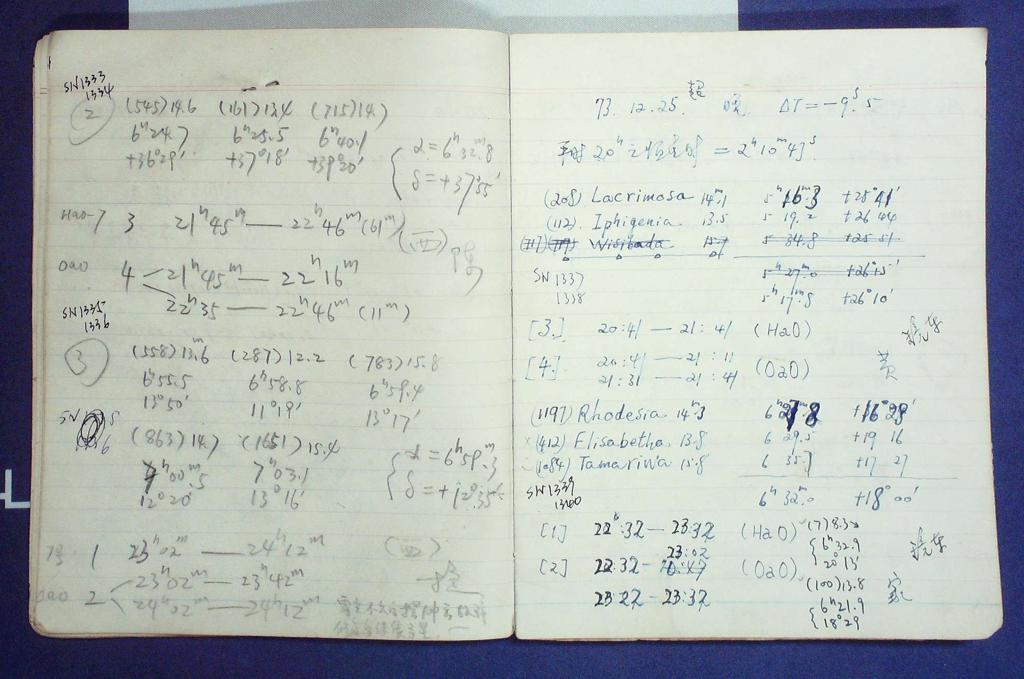 SN1333
1334
2 (545)14.6 (161)13.4 (715)14.7
6ʰ24.7 6ʰ25.5 6ʰ40.1
+36°29′ +37°18′ +39°20′
α=6ʰ32.ᵐ8
δ=+37°55′
Hao-7 3 21ʰ45ᵐ — 22ʰ46ᵐ(61ᵐ) (四)
OaO 4 21ʰ45ᵐ — 22ʰ16ᵐ
22ʰ35 — 22ʰ46ᵐ(11ᵐ)
SN1335
1336
3 (558)13.ᵐ6 (287)12.2 (783)15.8
6ʰ55.5 6ʰ58.8 6ʰ59.4
13°50′ 11°19′ 13°17′
(863)14.7 (1651)15.4
7ʰ00.5 7ʰ03.1
12°20′ 13°16′
α=6ʰ59.ᵐ3
δ=+12°35′
1 23ʰ02ᵐ — 24ʰ12ᵐ (四)
OaO 2 23ʰ02ᵐ — 23ʰ42ᵐ
24ʰ02ᵐ — 24ʰ12ᵐ
73.12.25 晚 ΔT=-9.ˢ5
平时20ʰ之恒星时=2ʰ10ᵐ43ˢ
(208) Lacrimosa 14.ᵐ1 5ʰ16.ᵐ3 +25°41′
(112) Iphigenia 13.5 5 19.2 +26 44
Wisibada 15.7 5 34.8 +25 51
5ʰ27.ᵐ0 +26°15′
SN1337
1338
5ʰ17.ᵐ8 +26°10′
[3.] 20:41 — 21:41 (HaO)
[4.] 20:41 — 21:11 (OaO) 黄
21:31 — 21:41
(1197) Rhodesia 14.ᵐ3 6ʰ27.ᵐ8 +16°28′
(412) Elisabetha 13.8 6 29.5 +19 16
(1084) Tamariwa 15.8 6 35.7 +17 27
SN1339
1340
6ʰ32.ᵐ0 +18°00′
[1] 22ʰ:32 — 23:32 (HaO)
[2] 22:32 — 23:02 (OaO)
23:22 — 23:32
(7)8.3
6ʰ32.9
20°13′
(100)13.8
6ʰ21.9
18°29